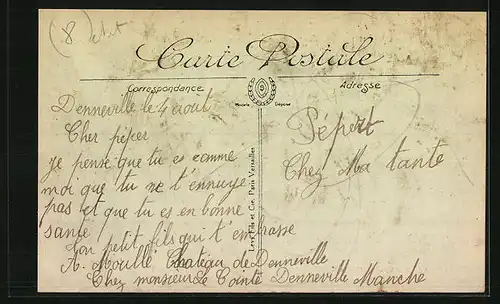 (8 petit
Carte Postale
Correspondance
Adresse
Modèle Déposé
9
Denneville le 4 aout
Cher péper
je pense que tu es comme
moi que tu ne t'ennuye
pas et que tu es en bonne
santé
Ton petit fils qui t'embrasse
A. Moullé Chateau de Denneville
Chez monsieur Le Cointe Denneville Manche
Pépert
Chez Ma tante
Fils et Cie, Paris Versailles